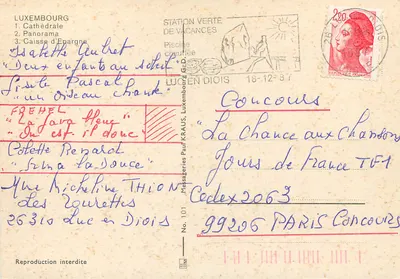 LUXEMBOURG
1. Cathédrale
2. Panorama
3. Caisse d'Epargne
Isabelle Aubret
"Deux enfants au soleil"
Pascal
"un oiseau chante"
FREHEL
"La Java bleue"
"Où est il donc"
Colette Renard
"Irma la Douce"
Mme Micheline THION
Les Tourettes
26310 Luc en Diois
Reproduction interdite
No. 101
Messageries Paul KRAUS, Luxembourg
STATION VERTE
DE VACANCES
Piscine
chauffée
LUC EN DIOIS
18-12-87
2,20
Concours
"La Chance aux Chansons"
Jours de France TF1
Cedex 2063
99206 PARIS CONCOURS